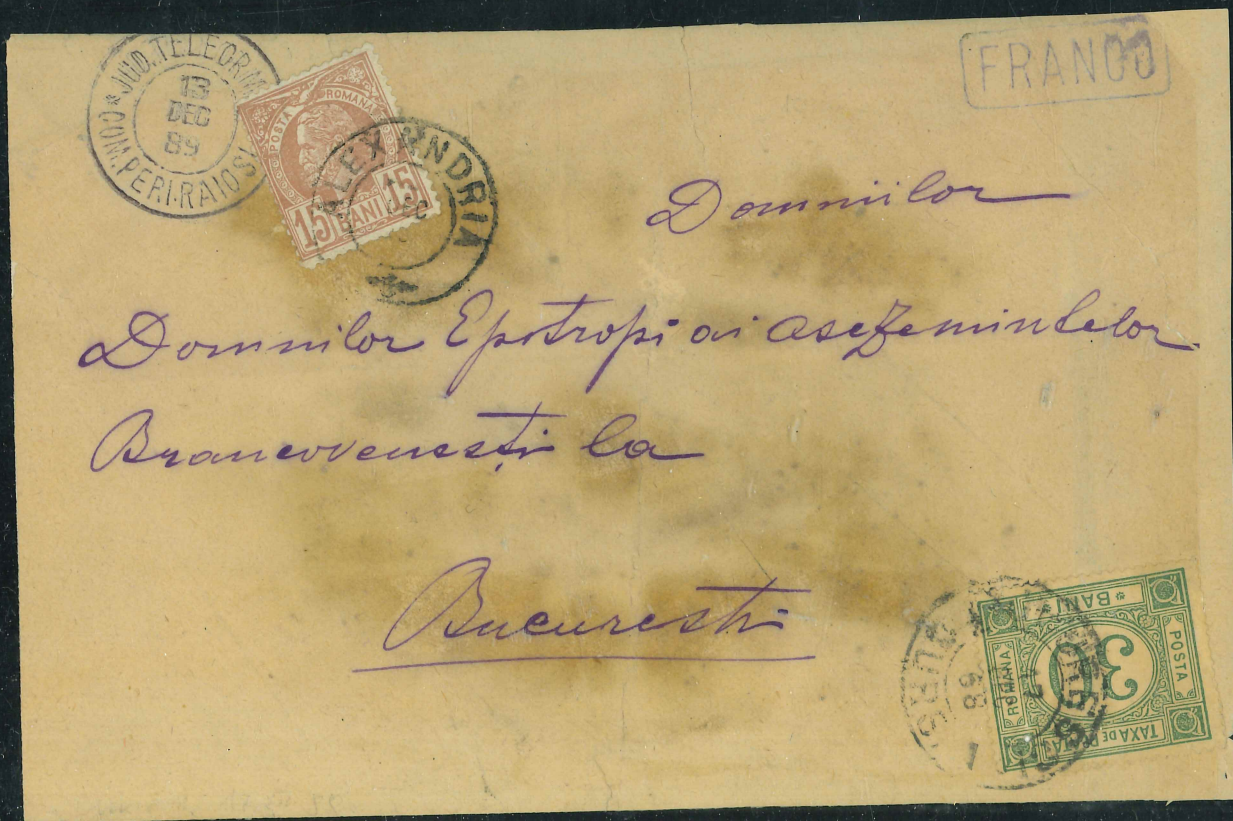 * JUD. TELEORM
COM. PERI-RAIOSI
13
DEC
89
POSTA ROMANA
15 BANI 15
ALEXANDRIA
DEC
FRANCO
Domniilor
Domnilor Epotropi ai asezemintelor
Brancovenesti la
Bucuresti
* BANI *
POSTA
ROMANA
30
TAXA DE